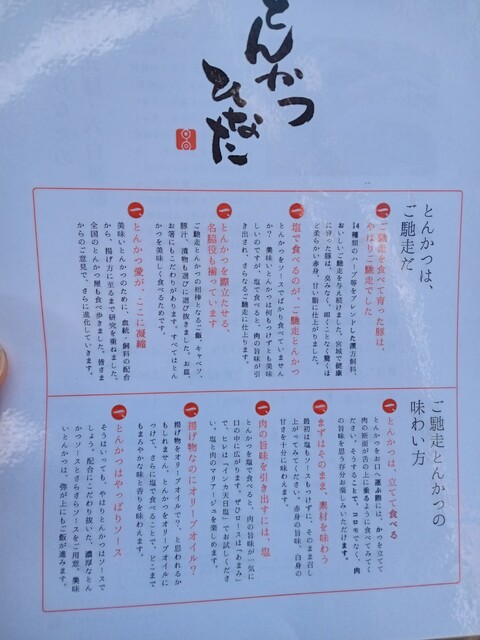 とんかつ
ひなた
とんかつは、
ご馳走だ
一、ご馳走を食べて育った豚は、
やはりご馳走でした
14種類のハーブ等をブレンドした漢方飼料。
おいしいご馳走を与え続けました。宮城で健康
に育った豚は、臭みなく、叩くことなく驚くほ
ど柔らかい赤身、甘い脂に仕上がりました。
一、塩で食べるのが、ご馳走とんかつ
とんかつをソースでばかり食べていません
か？ 美味いとんかつは何もつけずとも美味
しいのですが、塩で食べると、肉の旨味が引
き出され、さらなるご馳走に仕上ります。
一、とんかつを際立たせる、
名脇役も揃っています
ご馳走とんかつの相棒となるご飯、キャベツ、
豚汁、漬物も選びに選び抜きました。お皿、
お箸にもこだわりがあります。すべてはとん
かつを美味しく食べるためです。
一、とんかつ愛が、ここに凝縮
美味いとんかつのために、血統・飼料の配合
から、揚げ方に至るまで研究を重ねました。
全国のとんかつ屋も食べ歩きました。皆さま
からのご意見で、さらに進化していきます。
ご馳走とんかつの
味わい方
一、とんかつは、立てて食べる
とんかつをお口へ運ぶ際には、かつを立てて
肉の断面が舌の上に乗るように食べてみてく
ださい。そうすることで、コロモでなく、肉
の旨味を思う存分お楽しみいただけます。
一、まずはそのまま、素材を味わう
最初は塩もソースもつけずに、そのまま召し
上がってみてください。赤身の旨味、白身の
甘さを十分に味わえます。
一、肉の旨味を引き出すには、塩
とんかつを塩で食べると、肉の旨味が一気に
口の中に広がります。ぜひロースは「あまみ」
で、ヒレは「インカ天日塩」でお試しくださ
い。塩と肉のマリアージュを楽しめます。
一、揚げ物なのにオリーブオイル？
揚げ物をオリーブオイルで？、と思われるか
もしれません。とんかつをオリーブオイルに
つけて、さらに塩で食べることで、どこまで
もまろやかな味と香りを味わえます。
一、とんかつはやっぱりソース
そうはいっても、やはりとんかつはソースで
しょう。配合にこだわり抜いた、濃厚なとん
かつソースとさらさらソースをご用意。美味
いとんかつは、弥が上にもご飯が進みます。